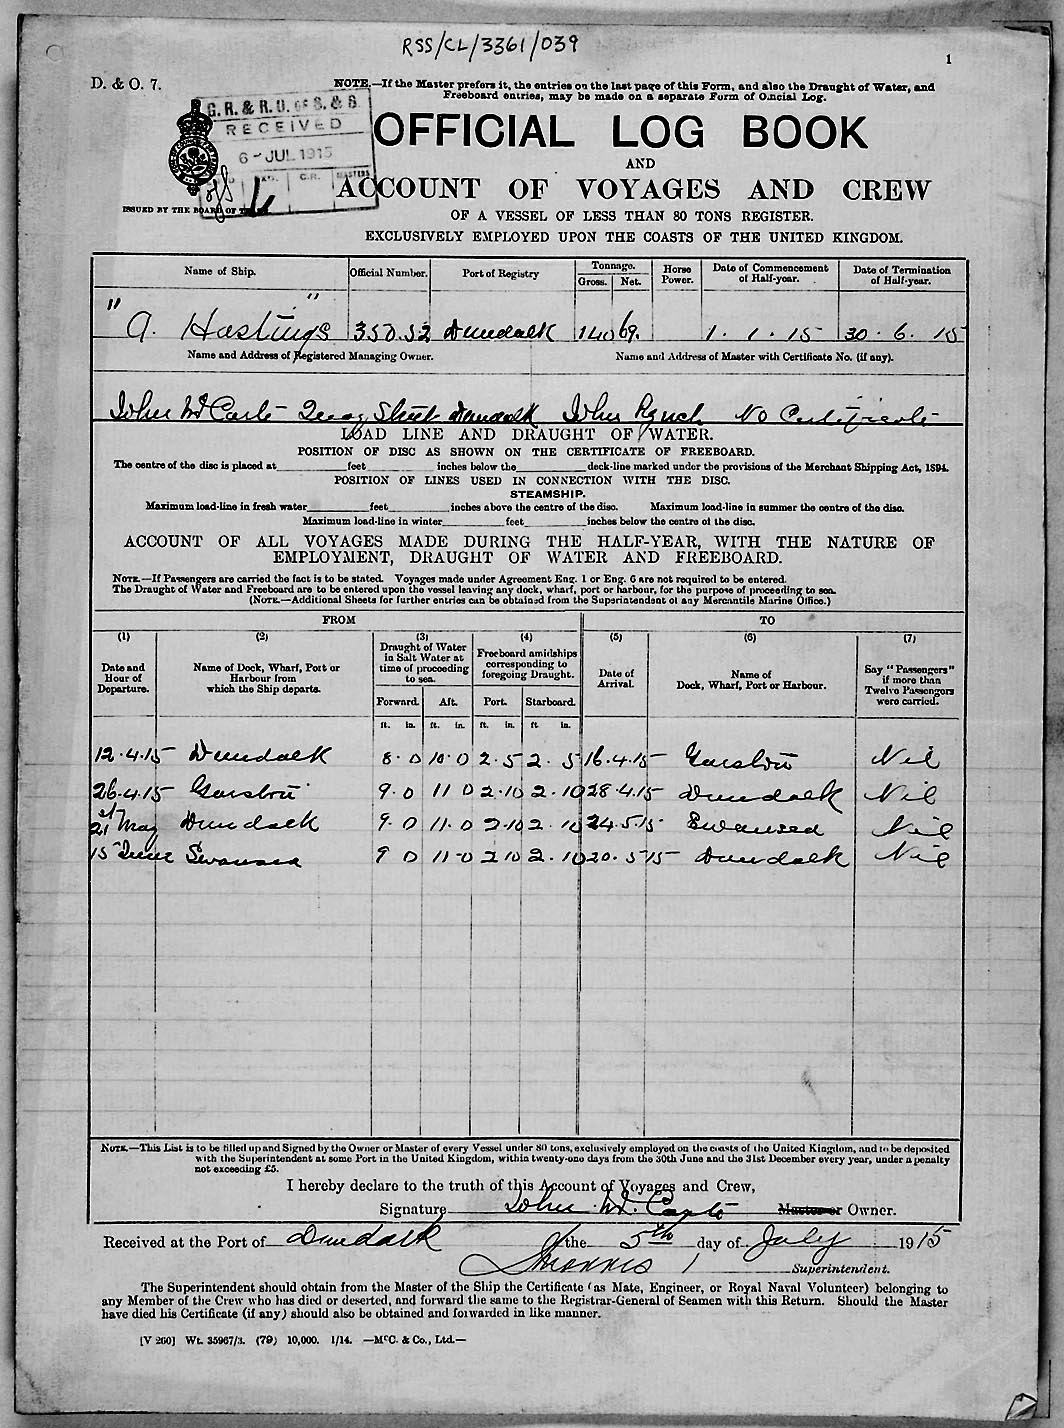 RSS/CL/3361/039
1
D. & O. 7.
NOTE.—If the Master prefers it, the entries on the last page of this Form, and also the Draught of Water, and
Freeboard entries, may be made on a separate Form of Official Log.
G. R. & R. O. OF S. & S.
RECEIVED
6 - JUL 1915
C.R. MASTERS
OFFICIAL LOG BOOK
AND
ACCOUNT OF VOYAGES AND CREW
ISSUED BY THE BOARD OF
OF A VESSEL OF LESS THAN 80 TONS REGISTER.
EXCLUSIVELY EMPLOYED UPON THE COASTS OF THE UNITED KINGDOM.
Name of Ship. Official Number. Port of Registry Tonnage. Gross. Net. Horse Power. Date of Commencement of Half-year. Date of Termination of Half-year.
" A. Hastings " 350.52 Dundalk 140 69. 1. 1. 15 30. 6. 15
Name and Address of Registered Managing Owner. Name and Address of Master with Certificate No. (if any).
John McCarte Quay Street Dundalk John No Certificate
LOAD LINE AND DRAUGHT OF WATER.
POSITION OF DISC AS SHOWN ON THE CERTIFICATE OF FREEBOARD.
The centre of the disc is placed at feet inches below the deck-line marked under the provisions of the Merchant Shipping Act, 1894.
POSITION OF LINES USED IN CONNECTION WITH THE DISC.
STEAMSHIP.
Maximum load-line in fresh water feet inches above the centre of the disc. Maximum load-line in summer the centre of the disc.
Maximum load-line in winter feet inches below the centre of the disc.
ACCOUNT OF ALL VOYAGES MADE DURING THE HALF-YEAR, WITH THE NATURE OF
EMPLOYMENT, DRAUGHT OF WATER AND FREEBOARD.
NOTE.—If Passengers are carried the fact is to be stated. Voyages made under Agreement Eng. 1 or Eng. 6 are not required to be entered.
The Draught of Water and Freeboard are to be entered upon the vessel leaving any dock, wharf, port or harbour, for the purpose of proceeding to sea.
(NOTE.—Additional Sheets for further entries can be obtained from the Superintendent of any Mercantile Marine Office.)
FROM TO
(1) (2) (3) (4) (5) (6) (7)
Date and Hour of Departure. Name of Dock, Wharf, Port or Harbour from which the Ship departs. Draught of Water in Salt Water at time of proceeding to sea. Freeboard amidships corresponding to foregoing Draught. Date of Arrival. Name of Dock, Wharf, Port or Harbour. Say "Passengers" if more than Twelve Passengers were carried.
Forward. Aft. Port. Starboard.
ft. in. ft. in. ft. in. ft. in.
12.4.15 Dundalk 8.0 10.0 2.5 2.5 16.4.15 Garston Nil
26.4.15 Garston 9.0 11 0 2.10 2.10 28.4.15 Dundalk Nil
21st May Dundalk 9.0 11.0 2.10 2.10 24.5.15 Swansea Nil
15 June Swansea 9 0 11-0 2 10 2.10 20.5.15 Dundalk Nil
NOTE.—This List is to be filled up and Signed by the Owner or Master of every Vessel under 80 tons, exclusively employed on the coasts of the United Kingdom, and to be deposited
with the Superintendent at some Port in the United Kingdom, within twenty-one days from the 30th June and the 31st December every year, under a penalty
not exceeding £5.
I hereby declare to the truth of this Account of Voyages and Crew,
Signature John McCarte Master or Owner.
Received at the Port of Dundalk the 5th day of July 1915
Superintendent.
The Superintendent should obtain from the Master of the Ship the Certificate (as Mate, Engineer, or Royal Naval Volunteer) belonging to
any Member of the Crew who has died or deserted, and forward the same to the Registrar-General of Seamen with this Return. Should the Master
have died his Certificate (if any) should also be obtained and forwarded in like manner.
[V 260] Wt. 35967/3. (79) 10,000. 1/14. —McC. & Co., Ltd.—